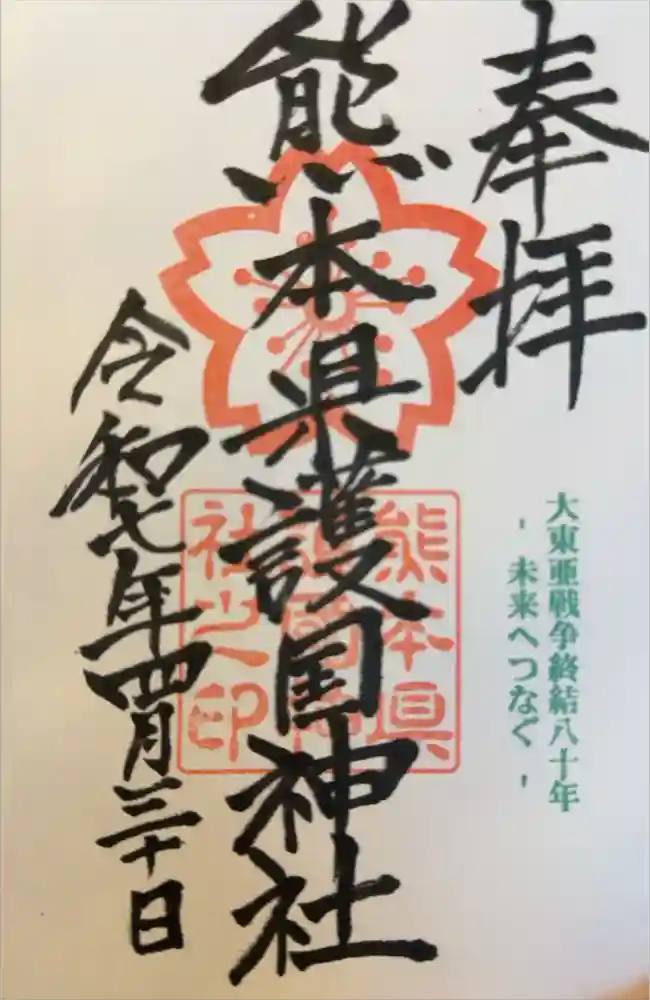 奉拝
大東亜戦争終結八十年
- 未来へつなぐ -
熊本県護国神社
熊本県
護国神
社之印
令和七年四月三十日